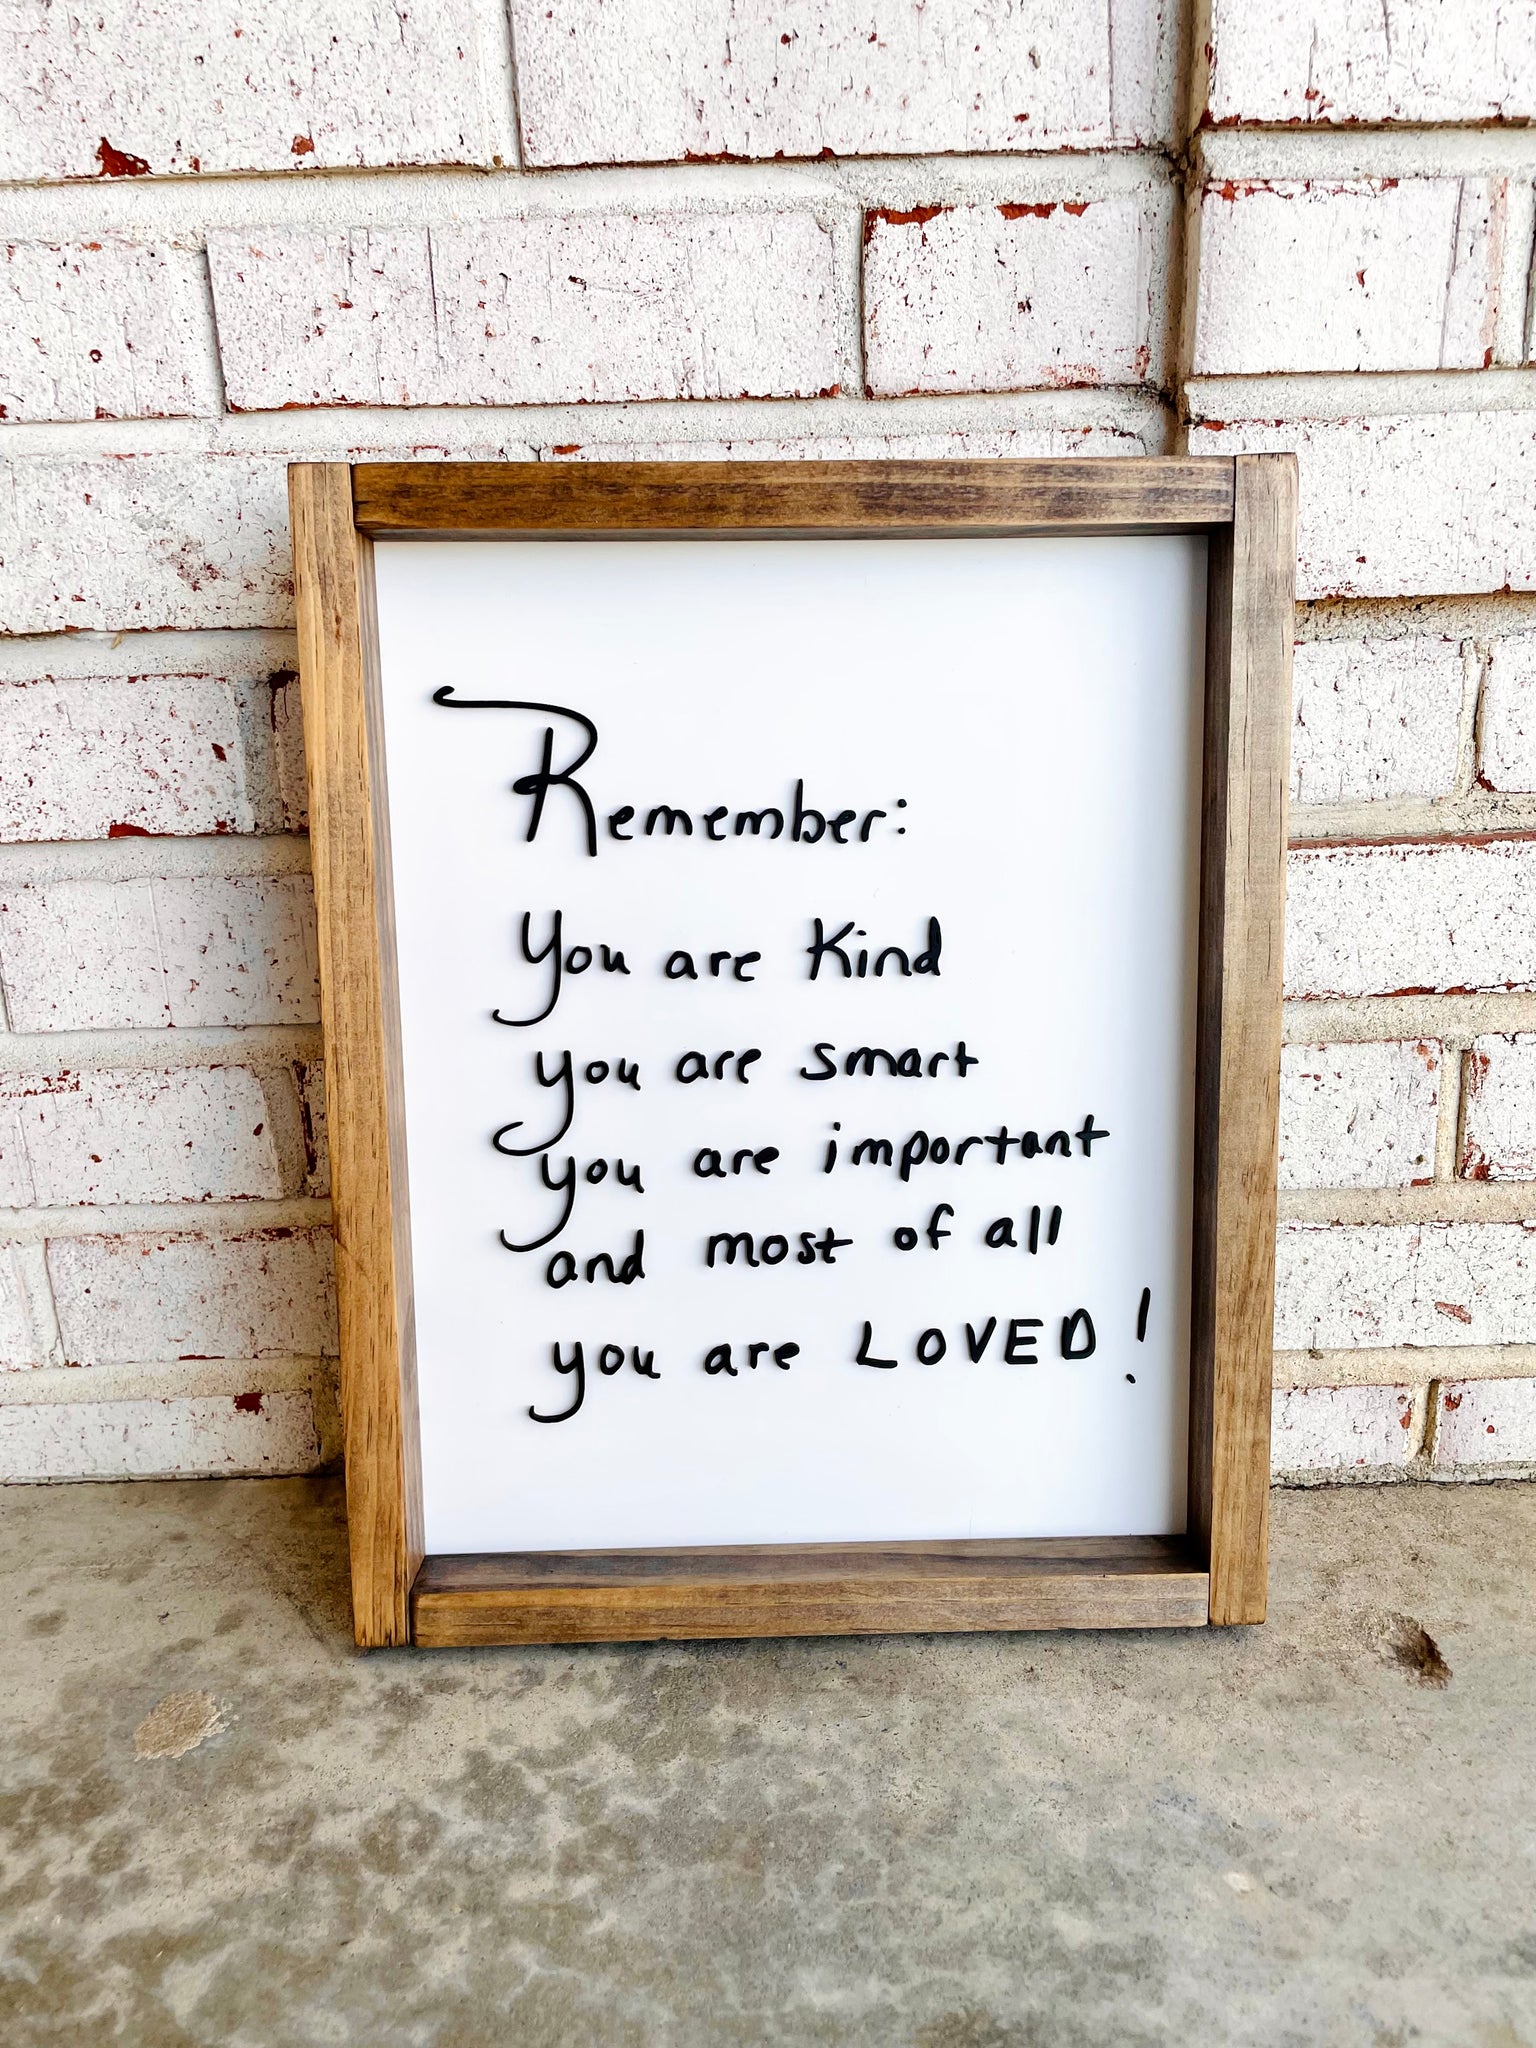 Remember:
You are Kind
you are smart
you are important
and most of all
you are LOVED!